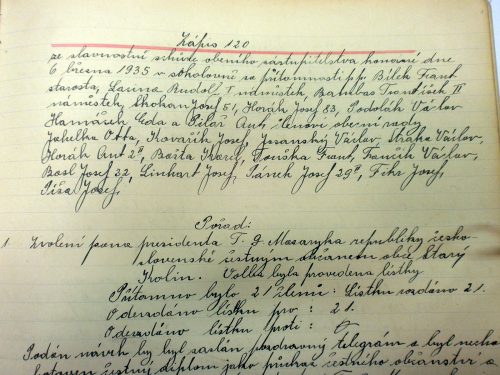 Zápis 120
ze slavnostní schůze obecního zastupitelstva konané dne
6 března 1935 v sokolovně za přítomnosti pp Bílek Frant
starosta, Laurna Rudolf I náměstek, Barabas František II
náměstek, Škohan Josef 51, Horák Josef 83, Podolák Václav
Hamáček Eda a Pilář Ant. členové obecní rady
Jahelka Otta, Kovařík Josef, Jesenský Václav, Straka Václav,
Horák Ant 2, Bašta Karel, Douška Frant, Fančík Václav,
Basl Josef 22, Linhart Josef, Pánek Josef 29, Fehr Josef,
Píša Josef,
Pořad:
1 Zvolení pana presidenta T. G Masaryka republiky česko-
slovenské čestným občanem obce Starý
Kolín. Volba byla provedena lístky
Přítomno bylo 21 členů: Lístků rozdáno 21.
Odevzdáno lístků pro : 21.
Odevzdáno lístků proti : 0
Podán návrh by byl zaslán pozdravný telegram a byl necha
hotoven čestný diplom jako průkaz čestného občanství a